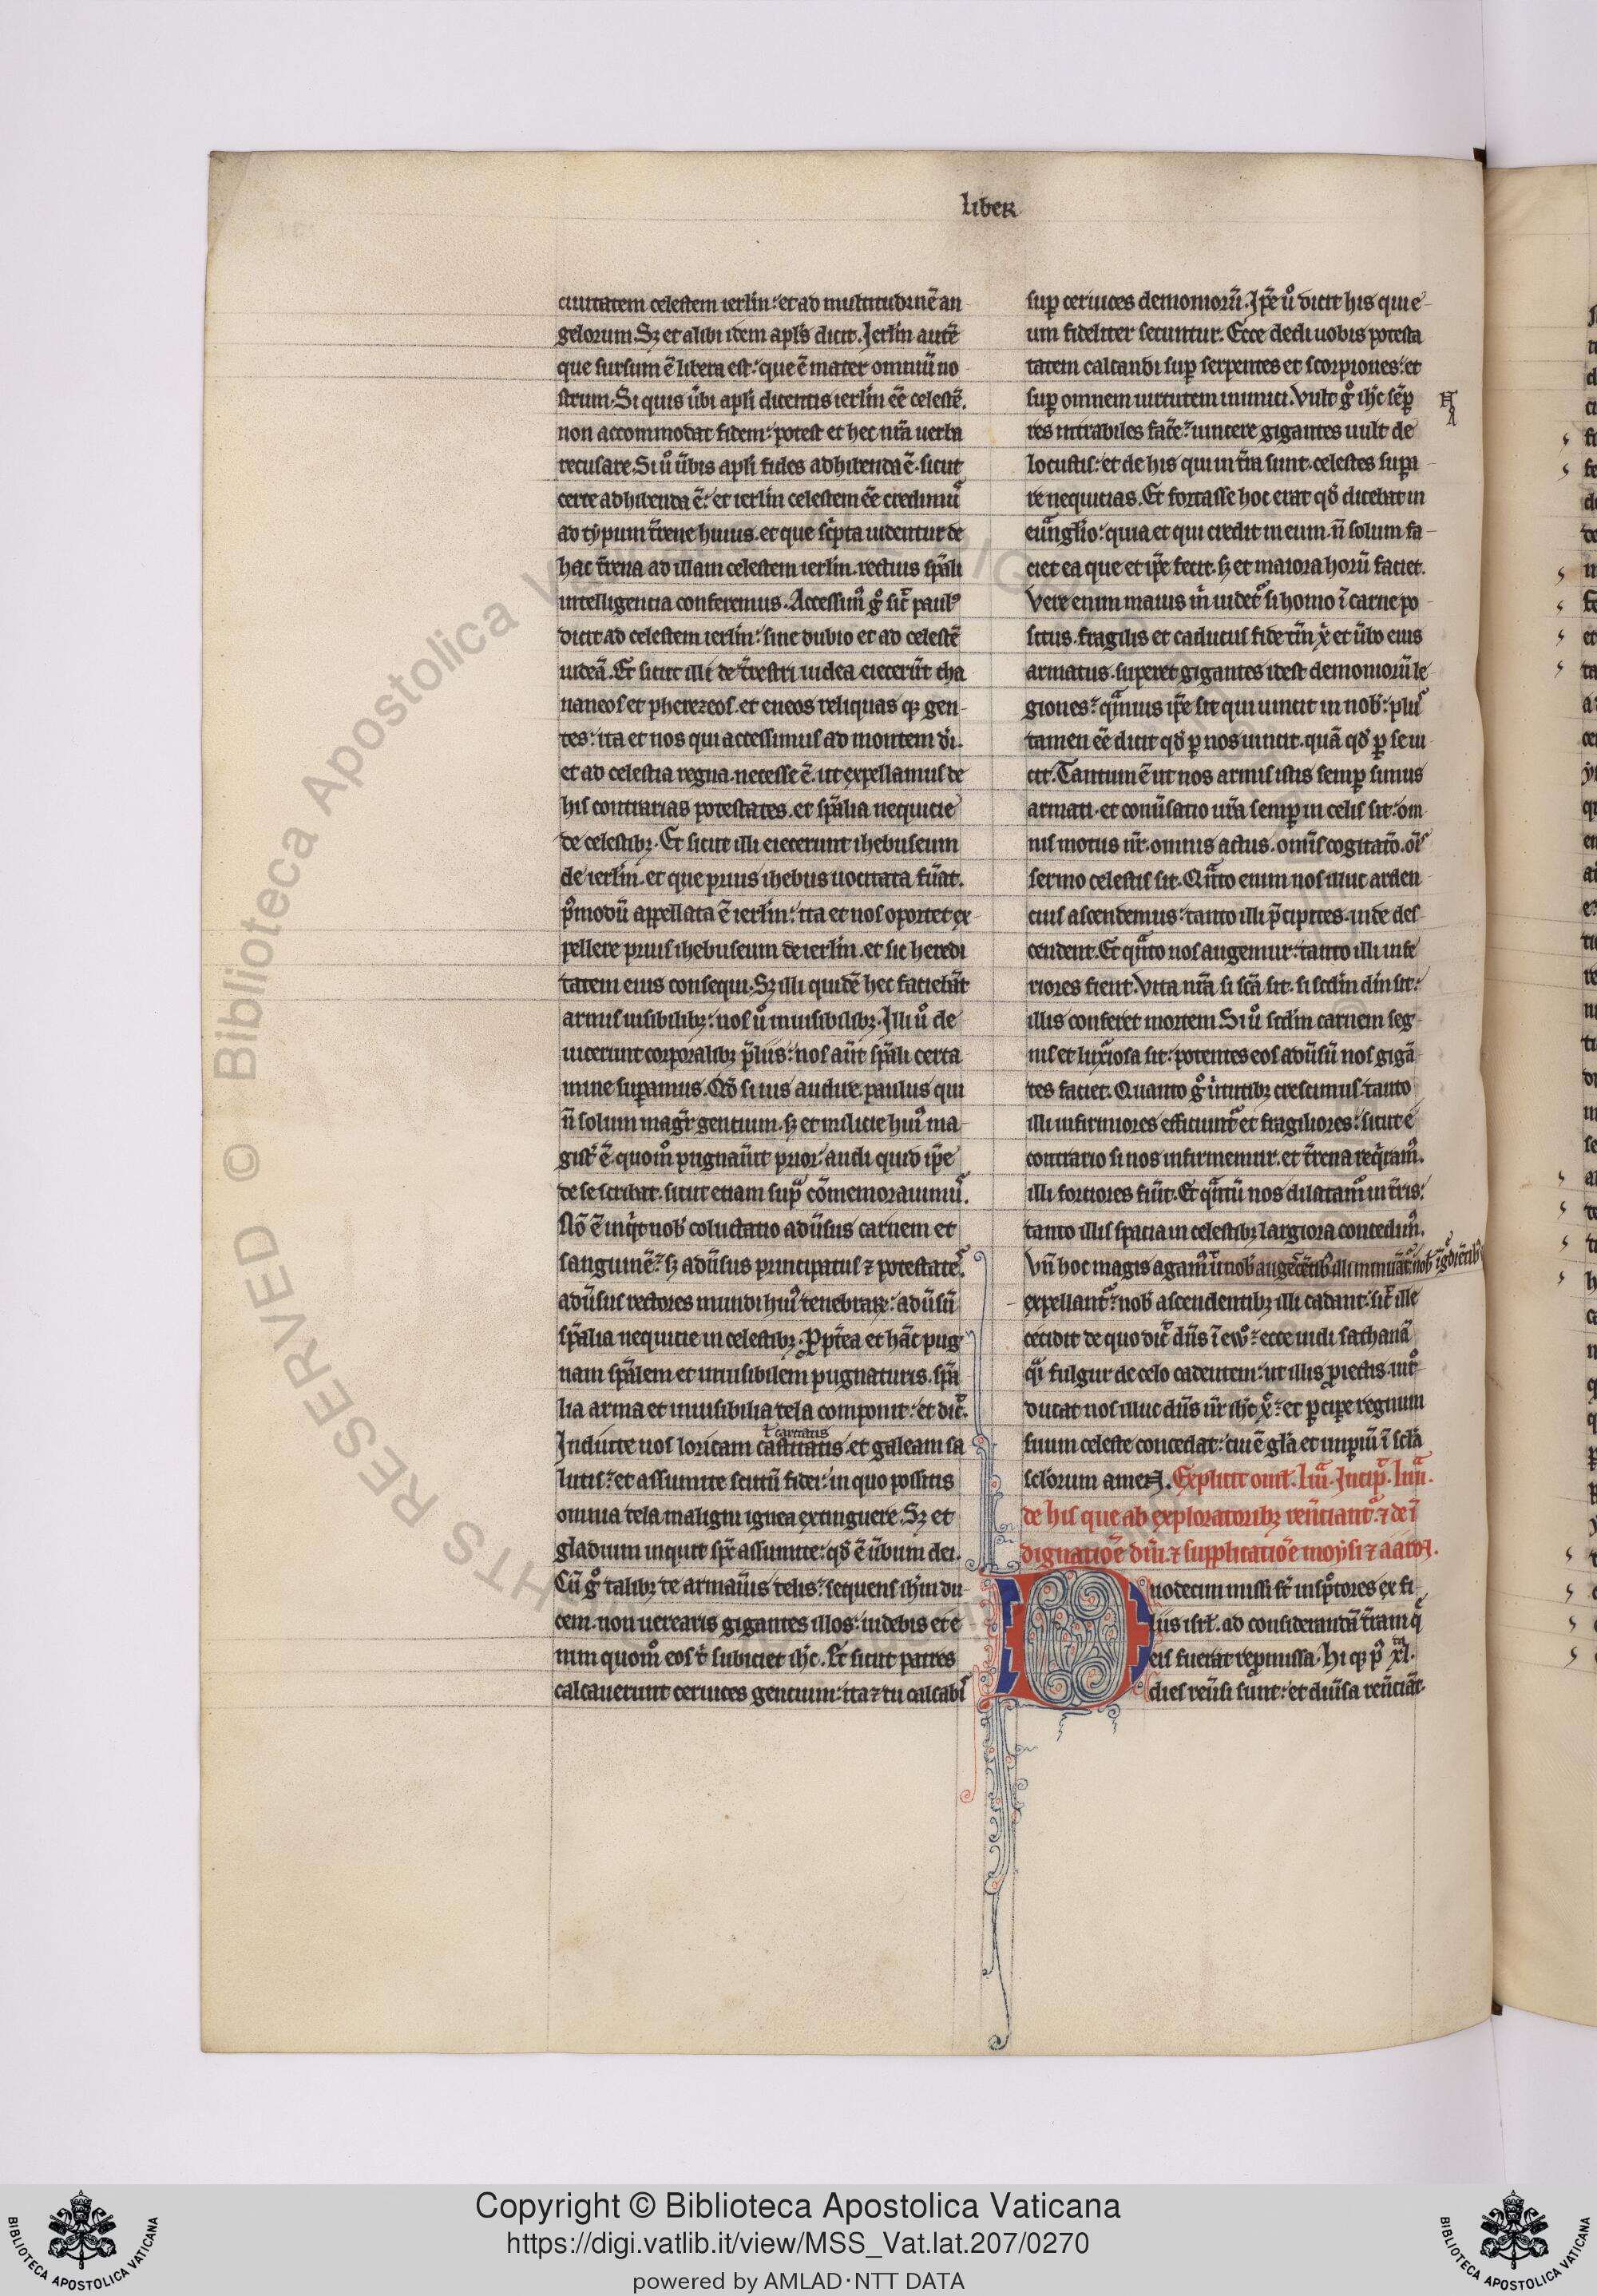 liber
ciuitatem celestem ierl̄m: et ad multitudinē an-
gelorum. Sꝫ et alibi idem apl̄s dicit. Ierl̄m autē
que sursum ē libera est: que ē mater omniū no-
strum. Si quis ūbi apl̄i dicentis ierl̄m eē celestē.
non accommodat fidem: potest et hec nr̄a uerba
recusare. Si uͦ ūbis apl̄i fides adhibenda ē. sicut
certe adhibenda ē: et ierl̄m celestem eē credimuᷣ
ad typum t̄rene huius. et que sc̄pta uidentur de
hac t̄rena ad illam celestem ierl̄m. rectius sp̄ali
intelligentia conferemus. Accessimꝰ gͦ sic̄ paulꝰ
dicit ad celestem ierl̄m: sine dubio et ad celestē
iudeā. Et sicut illi de t̄restri iudea eiecerūt cha
naneos et pherezeos. et eueos reliquas qꝫ gen-
tes: ita et nos qui accessimus ad montem dī.
et ad celestia regna. necesse ē. ut expellamus de
his contrarias potestates. et sp̄alia nequicie
de celestibꝫ. Et sicut illi eiecerunt ihebuseum
de ierl̄m. et que prius ihebus uocitata fūat.
pꝰmodū appellata ē ierl̄m: ita et nos oportet ex-
pellere prius ihebuseum de ierl̄m. et sic heredi
tatem eius consequi. Sꝫ illi quidē hec faciebāt
armis uisibilibꝫ: nos uͦ inuisibilibꝫ. Illi uͦ de
uicerunt corporalibꝫ p̄liis: nos aūt sp̄ali certa
mine supamus. Qd̄ si uis audire. paulus qui
n̄ solum magr̄ gentium. sꝫ et milicie huiꝰ ma-
gist̄ ē. quomͦ pugnauit prior: audi quid ip̄e
de se scribat. sicut etiam supᷓ cōmemorauimuᷣ.
Nō ē inqͥt nob̄ coluctatio adūsus carnem et
sanguinē: sꝫ adūsus principatus ⁊ potestateᷤ.
adūsus rectores mundi huiꝰ tenebraꝝ: adūsū
sp̄alia nequicie in celestibꝫ. Ꝓpt̄ea et hāc pug
nam sp̄alem et inuisibilem pugnaturis. sp̄a
lia arma et inuisibilia tela componit: et dic̄.
ł caritatis
Induite uos loricam castitatis. et galeam sa
lutis: et assumite scutū fidei: in quo possitis
omnia tela maligni ignea extinguere. Sꝫ et
gladium inquit sp̄c assumite: qd̄ ē ūbum dei.
Cū gͦ talibꝫ te armaūis telis: sequens ih̄m du-
cem. non uerearis gigantes illos: uidebis et e
nim quomͦ eos t̄ subiciet ih̄c. Et sicut patres
calcauerunt ceruices gentium: ita ⁊ tu calcabis
suꝑ ceruices demoniorū. Ip̄e uͦ dicit his qui e-
um fideliter secuntur. Ecce dedi uobis potesta
tatem calcandi suꝑ serpentes et scorpiones: et
suꝑ omnem uirtutem inimici. Vult gͦ ih̄c sēꝑ
res mirabiles fac̄e: uincere gigantes uult de
locustis: et de his qui in t̄ra sunt. celestes supa-
re nequicias. Et fortasse hoc erat qd̄ dicebat in
euᷓnglio: quia et qui credit in eum. n̄ solum fa-
ciet ea que et ip̄e fecit. sꝫ et maiora horū faciet.
Vere enim maius m̄ uidet᷑ si homo ī carne po-
situs. fragilis et caducus fide tm̄ xp̄i et ūbo eius
armatus. superet gigantes idest demoniorū le-
giones: qᷓmuis ip̄e sit qui uincit in nob̄: plus
tamen eē dicit qd̄ ꝑ nos uincit. quā qd̄ ꝑ se ui
cit. Tantum ē ut nos armis istis semꝑ simus
armati. et conūsatio nr̄a semꝑ in celis sit: om-
nis motus nr̄. omnis actus. omīs cogitatō. oīs
sermo celestis sit. Qᷓnto enim nos illuc arden-
cius ascendemus: tanto illi p̄cipites. inde des-
cendent. Et qᷓnto nos augemur: tanto illi infe
riores fient. Vita nr̄a si sc̄a sit. si scd̄m dn̄m sit:
illis conferet mortem. Si uͦ scd̄m carnem seg-
nis et luxͥosa sit: potentes eos adūsū nos gigā-
tes faciet. Quanto gͦ uirtutibꝫ crescimus. tanto
illi infirmiores efficiunt᷑ et fragiliores: sicut e
contrario si nos infirmemur. et t̄rena reqͥramꝰ.
illi fortiores fiūt. Et qᷓntū nos dilatamꝰ in t̄ris:
tanto illis spacia in celestibꝫ largiora concedimꝰ.
Vn̄ hoc magis agamꝰ ut nob̄ augescentibꝫ illi minuāt᷑. nob̄ īgͤdientibꝫ
expellant᷑: nob̄ ascendentibꝫ illi cadant. sic̄ ille
cecidit de quo dic̄ dn̄s ī ewͦ: ecce uidi sathanā
qᷓi fulgur de celo cadentem: ut illis ꝓiectis. int̊
ducat nos illuc dn̄s nr̄ ih̄c xp̄c: et ꝑcipe regnum
suum celeste concedat: cui ē gl̄a et imꝑiū ī scl̄a
scl̄orum amen. Explicit omł. Iuͣ. Incip̄. Iuiiͣ.
de his que ab exploratoribꝫ renūciant᷑. ⁊ de ī
dignatiōe dn̄i. ⁊ supplicatiōe moysi ⁊ aaron.
Duodecim missi st̄ insp̄ctores ex fi-
liis isrł. ad considerandā t̄ram qͤ
eis fuerat repromissa. Hi qꝫ pꝰ xl.
dies reūsi sunt: et diūsa renūciāt
Copyright © Biblioteca Apostolica Vaticana
https://digi.vatlib.it/view/MSS_Vat.lat.207/0270
powered by AMLAD·NTT DATA
BIBLIOTECA APOSTOLICA VATICANA
BIBLIOTECA APOSTOLICA VATICANA